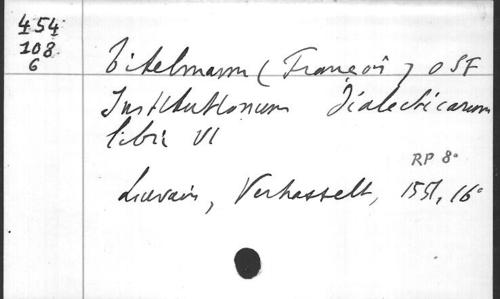 454
108
6
Titelmann (François) OSF
Institutionum Dialecticarum
libri VI
RP 8°
Louvain, Verhasselt, 1551, 16°